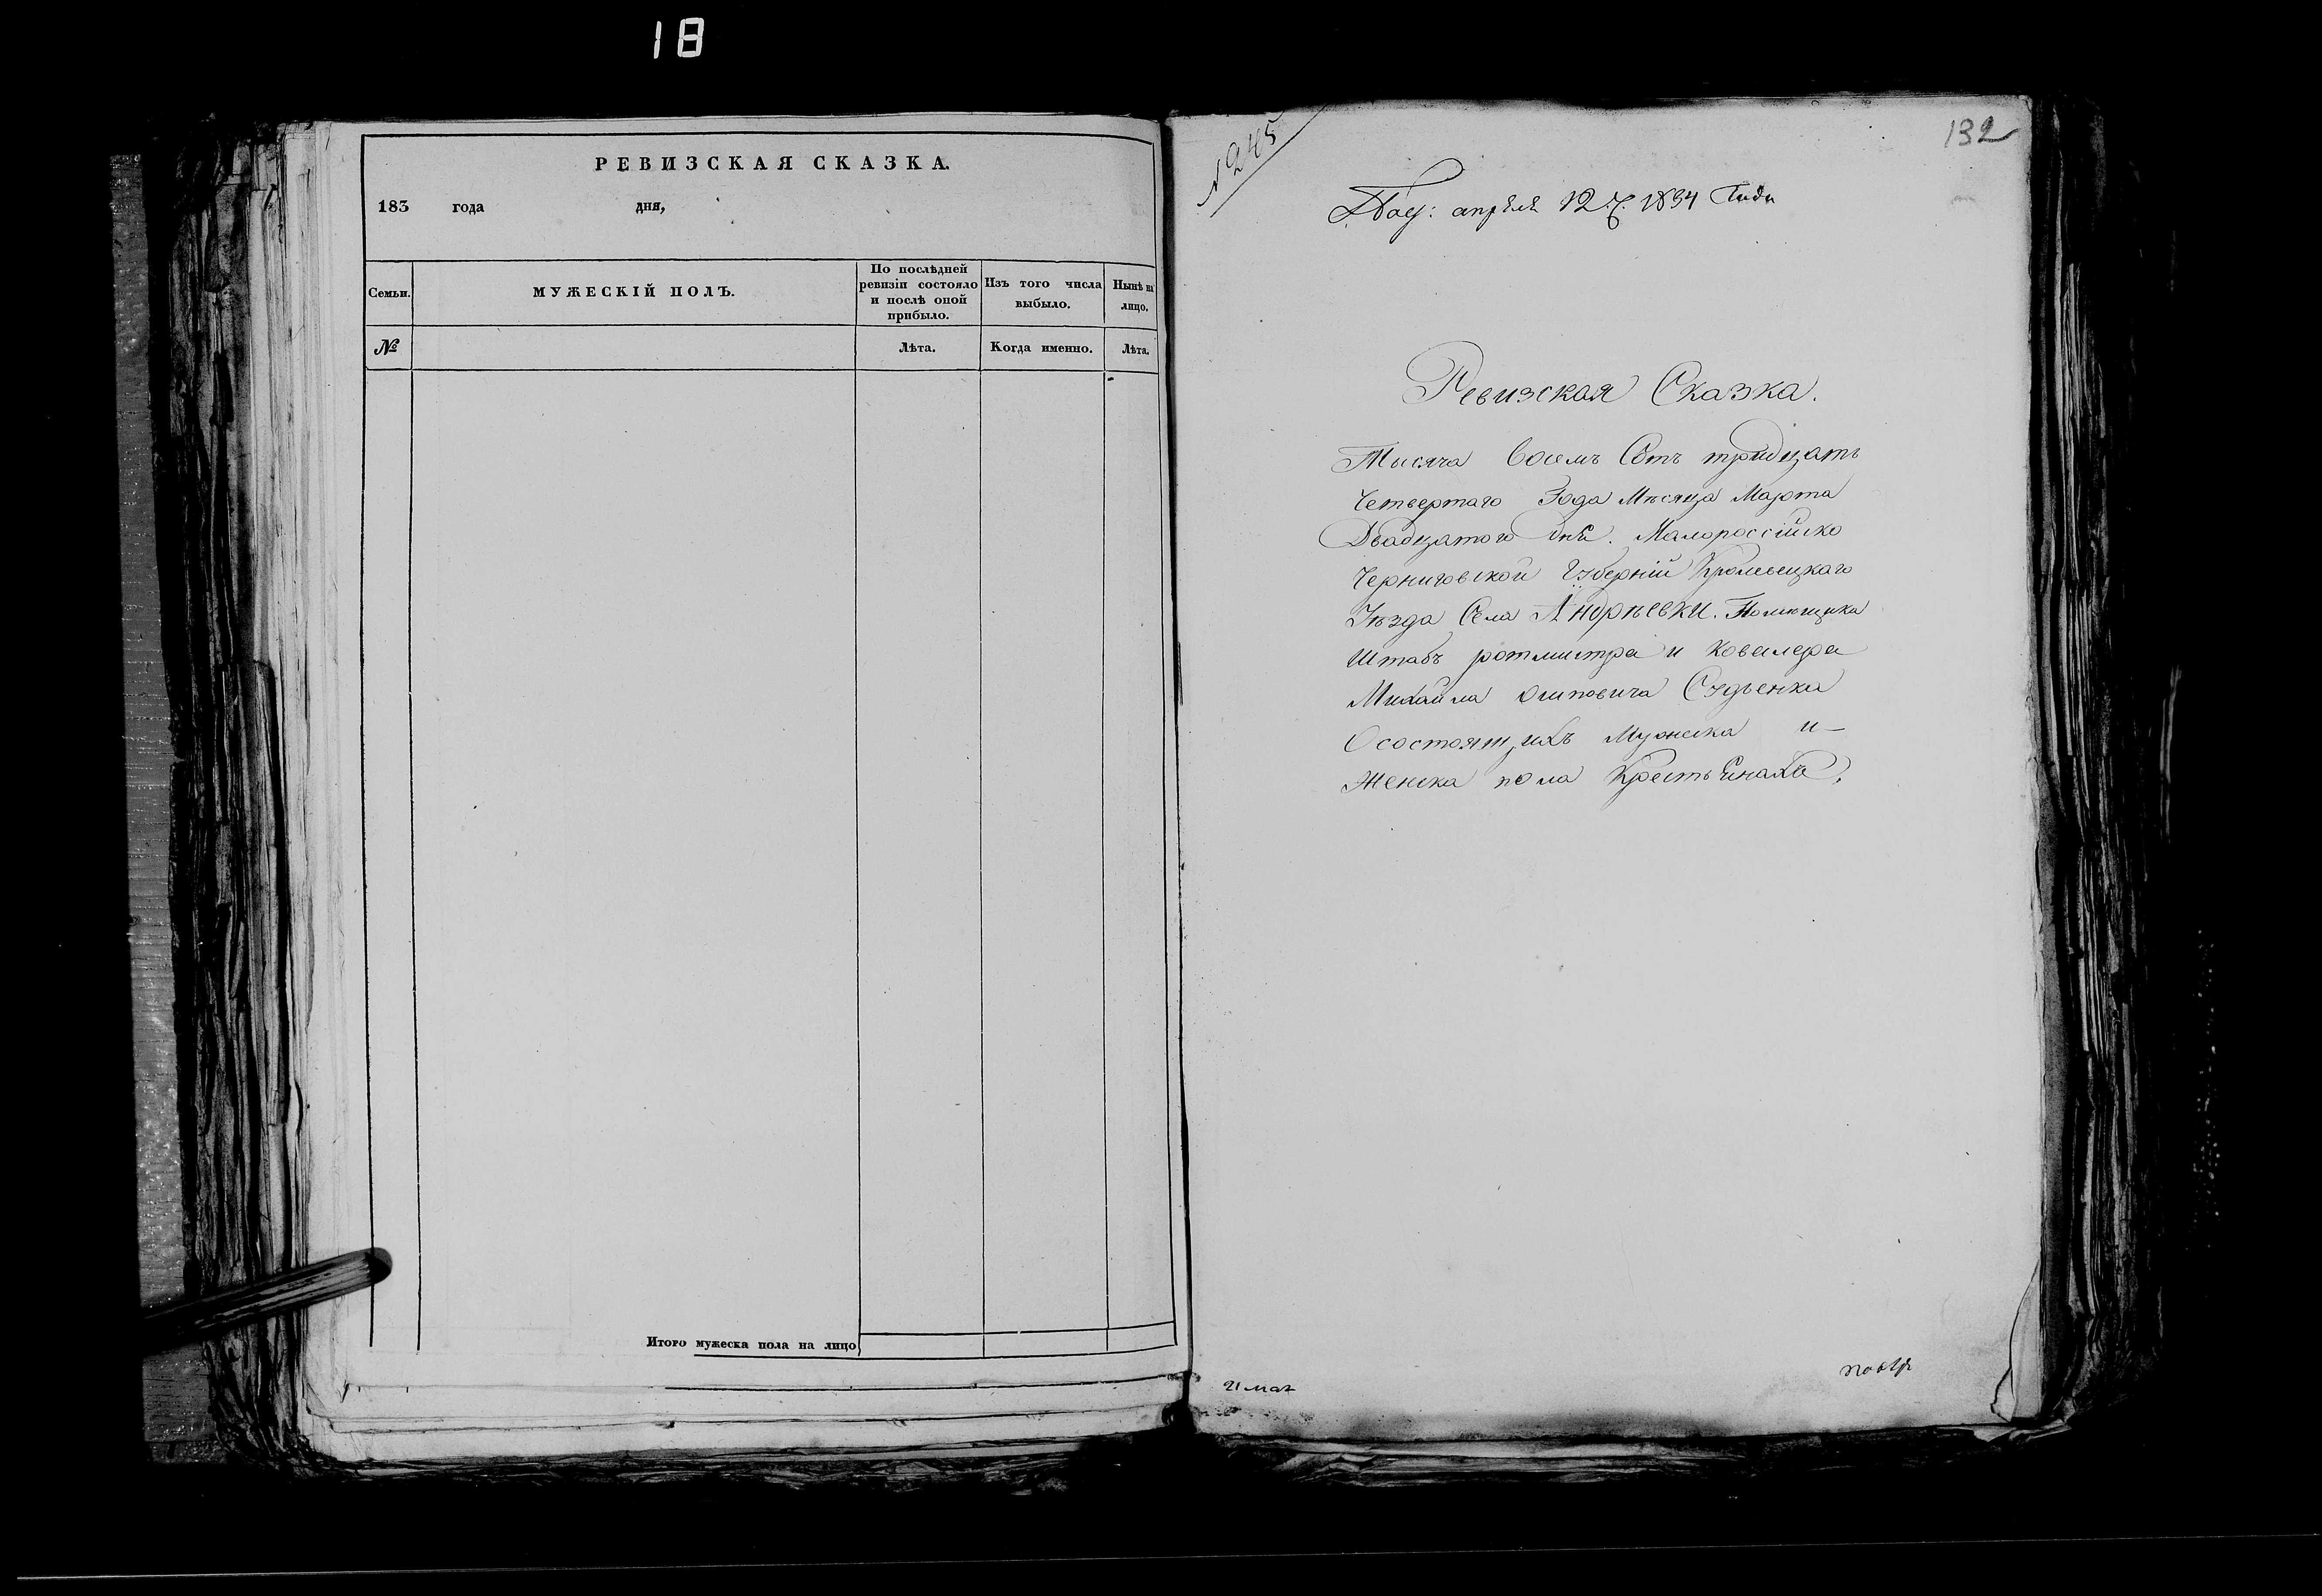 18
РЕВИЗСКАЯ СКАЗКА.
183 года дня,
Семьи.
МУЖЕСКІЙ ПОЛЪ.
По послѣдней
ревизіи состояло
и послѣ оной
прибыло.
Изъ того числа
выбыло.
Нынѣ на
лицо.
№
Лѣта.
Когда именно.
Лѣта.
Итого мужеска пола на лицо
№ 245
132
апрѣля 12 ч. 1834 Года
Ревизская Сказка.
Тысяча Восемъ Сотъ тридцать
Четвертаго Года Мѣсяца Марта
Двадцатого дня. Малороссійско
Черниговской Губерніи Кролевецкаго
Уѣзда Села Андрѣевки. Помѣщика
Штабъ ротмистра и Кавалера
Михайла Осиповича Судьенка
О состоящихъ Мужеска и —
Женска пола Крестьянахъ,